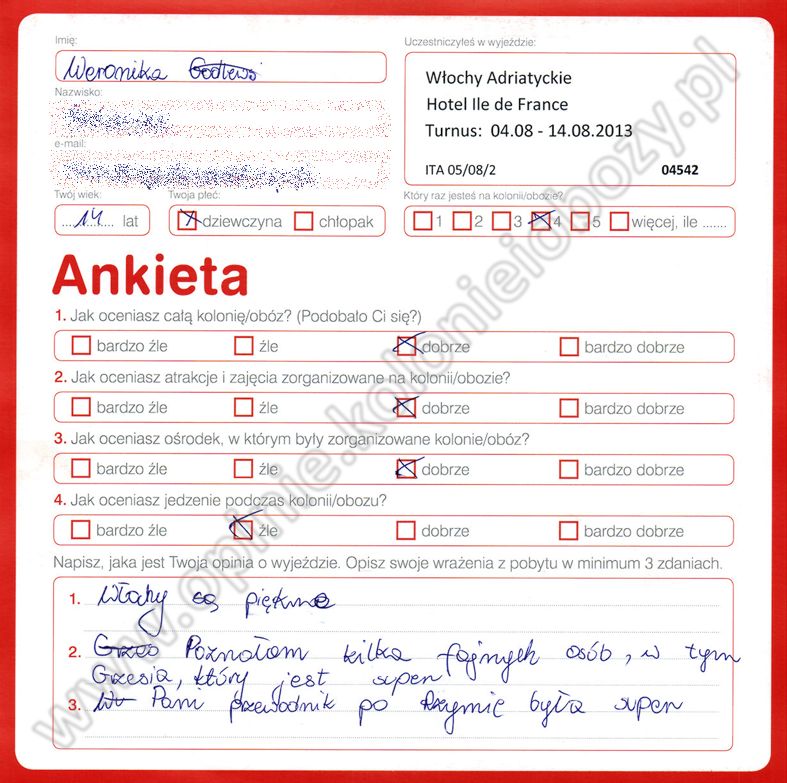 Imię:
Weronika Godlews
Nazwisko:
e-mail:
Twój wiek:
14 lat
Twoja płeć:
dziewczyna chłopak
Uczestniczyłeś w wyjeździe:
Włochy Adriatyckie
Hotel Ile de France
Turnus: 04.08 - 14.08.2013
ITA 05/08/2 04542
Który raz jesteś na kolonii/obozie?
1 2 3 4 5 więcej, ile .......
Ankieta
1. Jak oceniasz całą kolonię/obóz? (Podobało Ci się?)
bardzo źle źle dobrze bardzo dobrze
2. Jak oceniasz atrakcje i zajęcia zorganizowane na kolonii/obozie?
bardzo źle źle dobrze bardzo dobrze
3. Jak oceniasz ośrodek, w którym były zorganizowane kolonie/obóz?
bardzo źle źle dobrze bardzo dobrze
4. Jak oceniasz jedzenie podczas kolonii/obozu?
bardzo źle źle dobrze bardzo dobrze
Napisz, jaka jest Twoja opinia o wyjeździe. Opisz swoje wrażenia z pobytu w minimum 3 zdaniach.
1. Włochy są piękne
2. Poznałam kilka fajnych osób, w tym
Grzesia, który jest super
3. Pani przewodnik po Rzymie była super
www.opinie.kolonieiobozy.pl